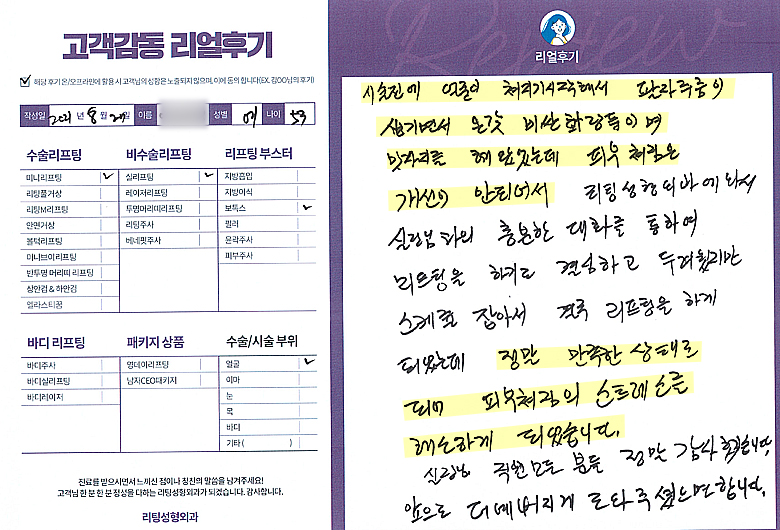 고객감동 리얼후기
해당 후기 온/오프라인에 활용 시 고객님의 성함은 노출되지 않으며, 이에 동의 합니다(EX. 김OO님의 후기)
작성일 2021년 8월 20일 이름 성별 여 나이 53
수술리프팅
미니리프팅
리팅풀거상
리팅M리프팅
안면거상
볼턱리프팅
이너브이리프팅
반투명 머리띠 리프팅
상안검 & 하안검
엘라스티꿈
비수술리프팅
실리프팅
레이저리프팅
투명머리띠리프팅
리팅주사
베네핏주사
리프팅 부스터
지방흡입
지방이식
보톡스
필러
윤곽주사
피부주사
바디 리프팅
바디주사
바디실리프팅
바디레이저
패키지 상품
영데이리프팅
남자CEO패키지
수술/시술 부위
얼굴
이마
눈
목
바디
기타 ( )
진료를 받으시면서 느끼신 점이나 칭찬의 말씀을 남겨주세요!
고객님 한 분 한 분 정성을 다하는 리팅성형외과가 되겠습니다. 감사합니다.
리팅성형외과
Review
리얼후기
시술전에 얼굴이 쳐지기 시작해서 팔자주름이
생기면서 온갖 비싼 화장품이며
맛사지를 해 왔었는데 피부 쳐짐은
개선이 안되어서 리팅성형외과에 와서
실장님과의 충분한 대화를 통하여
리프팅을 하기로 결심하고 두려웠지만
스케줄 잡아서 결국 리프팅을 하게
되었는데 정말 만족한 상태로
되어 피부쳐짐의 스트레스를
해소하게 되었습니다.
실장님 직원모든 분들 정말 감사했습니다
앞으로 더 예뻐지게 도와주셨으면 합니다.